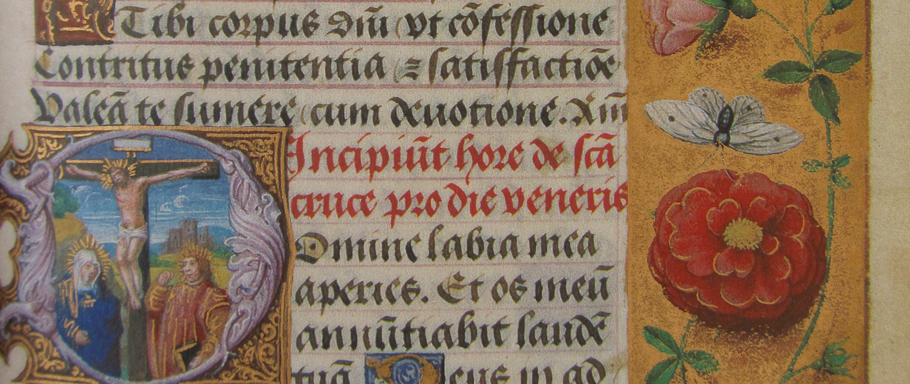 Tibi corpus dñi vt cõfessione
Contritus penitentia ⁊ satisffactiõe
Valeã te sumere cum deuotione. Am̃
Incipiũt hore de scã
cruce pro die veneris
Domine labia mea
aperies. Et os meũ
annũtiabit laudẽ
tuã Deus in ad